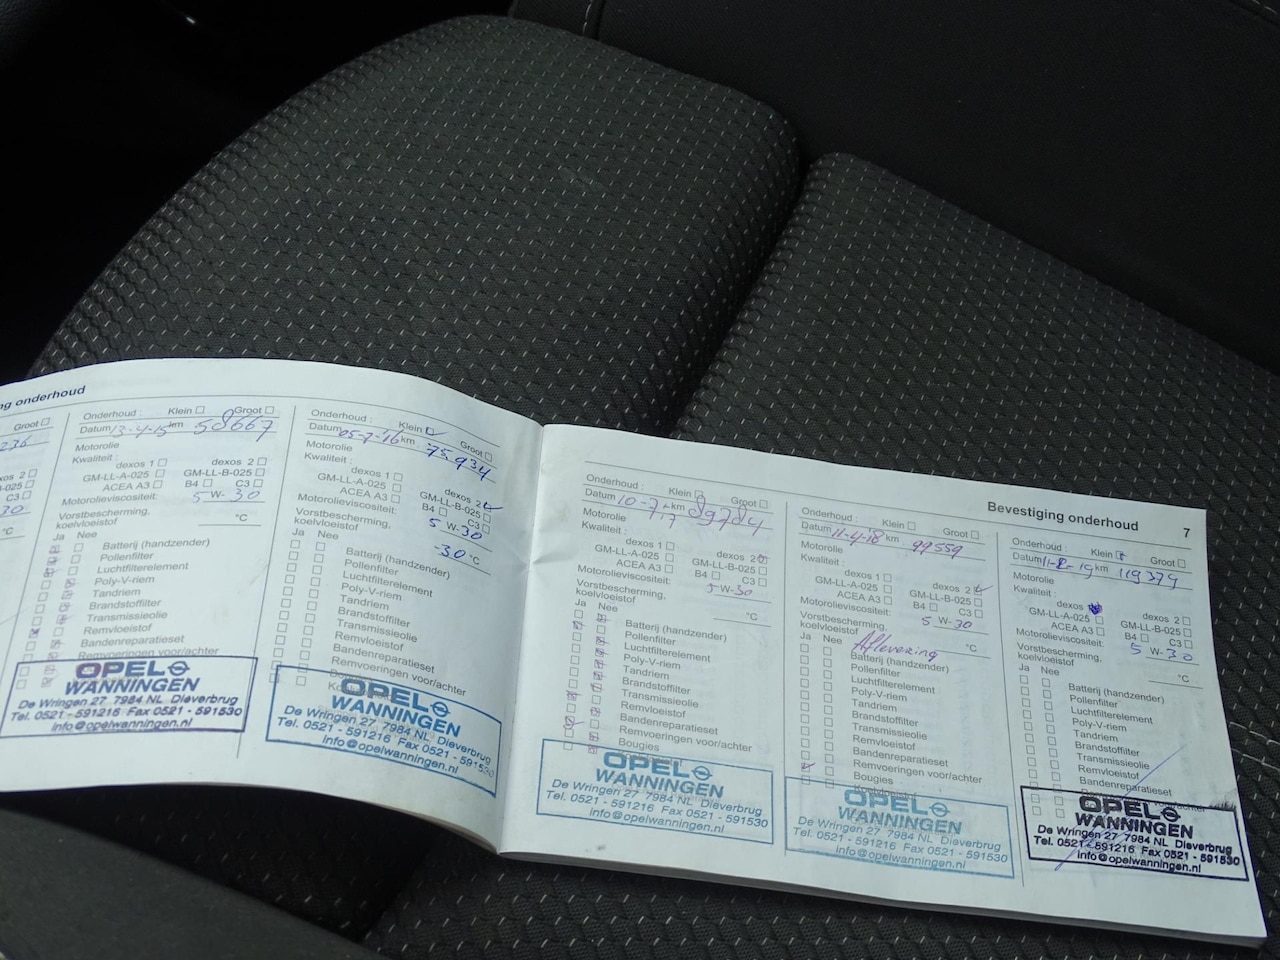 ng onderhoud
Groot
236
xos 2
-025
C3
30
°C
Onderhoud : Klein Groot
Datum 13-4-15 km 58667
Motorolie
Kwaliteit :
dexos 1 dexos 2
GM-LL-A-025 GM-LL-B-025
ACEA A3 B4 C3
Motorolieviscositeit: 5 W-30
Vorstbescherming,
koelvloeistof °C
Ja Nee
Batterij (handzender)
Pollenfilter
Luchtfilterelement
Poly-V-riem
Tandriem
Brandstoffilter
Transmissieolie
Remvloeistof
Bandenreparatieset
Remvoeringen voor/achter
OPEL
WANNINGEN
De Wringen 27 7984 NL Dieverbrug
Tel. 0521 - 591216 Fax 0521 - 591530
info@opelwanningen.nl
Onderhoud : Klein Groot
Datum 05-7-16 km 75.934
Motorolie
Kwaliteit :
dexos 1 dexos 2
GM-LL-A-025 GM-LL-B-025
ACEA A3 B4 C3
Motorolieviscositeit: 5 W-30
Vorstbescherming,
koelvloeistof -30 °C
Ja Nee
Batterij (handzender)
Pollenfilter
Luchtfilterelement
Poly-V-riem
Tandriem
Brandstoffilter
Transmissieolie
Remvloeistof
Bandenreparatieset
Remvoeringen voor/achter
OPEL
WANNINGEN
De Wringen 27 7984 NL Dieverbrug
Tel. 0521 - 591216 Fax 0521 - 591530
info@opelwanningen.nl
Bevestiging onderhoud 7
Onderhoud : Klein Groot
Datum 10-7-17 km 89784
Motorolie
Kwaliteit :
dexos 1 dexos 2
GM-LL-A-025 GM-LL-B-025
ACEA A3 B4 C3
Motorolieviscositeit: 5 W-30
Vorstbescherming,
koelvloeistof °C
Ja Nee
Batterij (handzender)
Pollenfilter
Luchtfilterelement
Poly-V-riem
Tandriem
Brandstoffilter
Transmissieolie
Remvloeistof
Bandenreparatieset
Remvoeringen voor/achter
Bougies
OPEL
WANNINGEN
De Wringen 27 7984 NL Dieverbrug
Tel. 0521 - 591216 Fax 0521 - 591530
info@opelwanningen.nl
Onderhoud : Klein Groot
Datum 11-4-18 km 99559
Motorolie
Kwaliteit :
dexos 1 dexos 2
GM-LL-A-025 GM-LL-B-025
ACEA A3 B4 C3
Motorolieviscositeit: 5 W-30
Vorstbescherming,
koelvloeistof °C
Ja Nee Aflevering
Batterij (handzender)
Pollenfilter
Luchtfilterelement
Poly-V-riem
Tandriem
Brandstoffilter
Transmissieolie
Remvloeistof
Bandenreparatieset
Remvoeringen voor/achter
Bougies
OPEL
WANNINGEN
De Wringen 27 7984 NL Dieverbrug
Tel. 0521 - 591216 Fax 0521 - 591530
info@opelwanningen.nl
Onderhoud : Klein Groot
Datum km 119379
Motorolie
Kwaliteit :
dexos dexos 2
GM-LL-A-025 GM-LL-B-025
ACEA A3 B4 C3
Motorolieviscositeit: 5 W-30
Vorstbescherming,
koelvloeistof °C
Ja Nee
Batterij (handzender)
Pollenfilter
Luchtfilterelement
Poly-V-riem
Tandriem
Brandstoffilter
Transmissieolie
Remvloeistof
Bandenreparatieset
OPEL
WANNINGEN
De Wringen 27 7984 NL Dieverbrug
Tel. 0521 - 591216 Fax 0521 - 591530
info@opelwanningen.nl